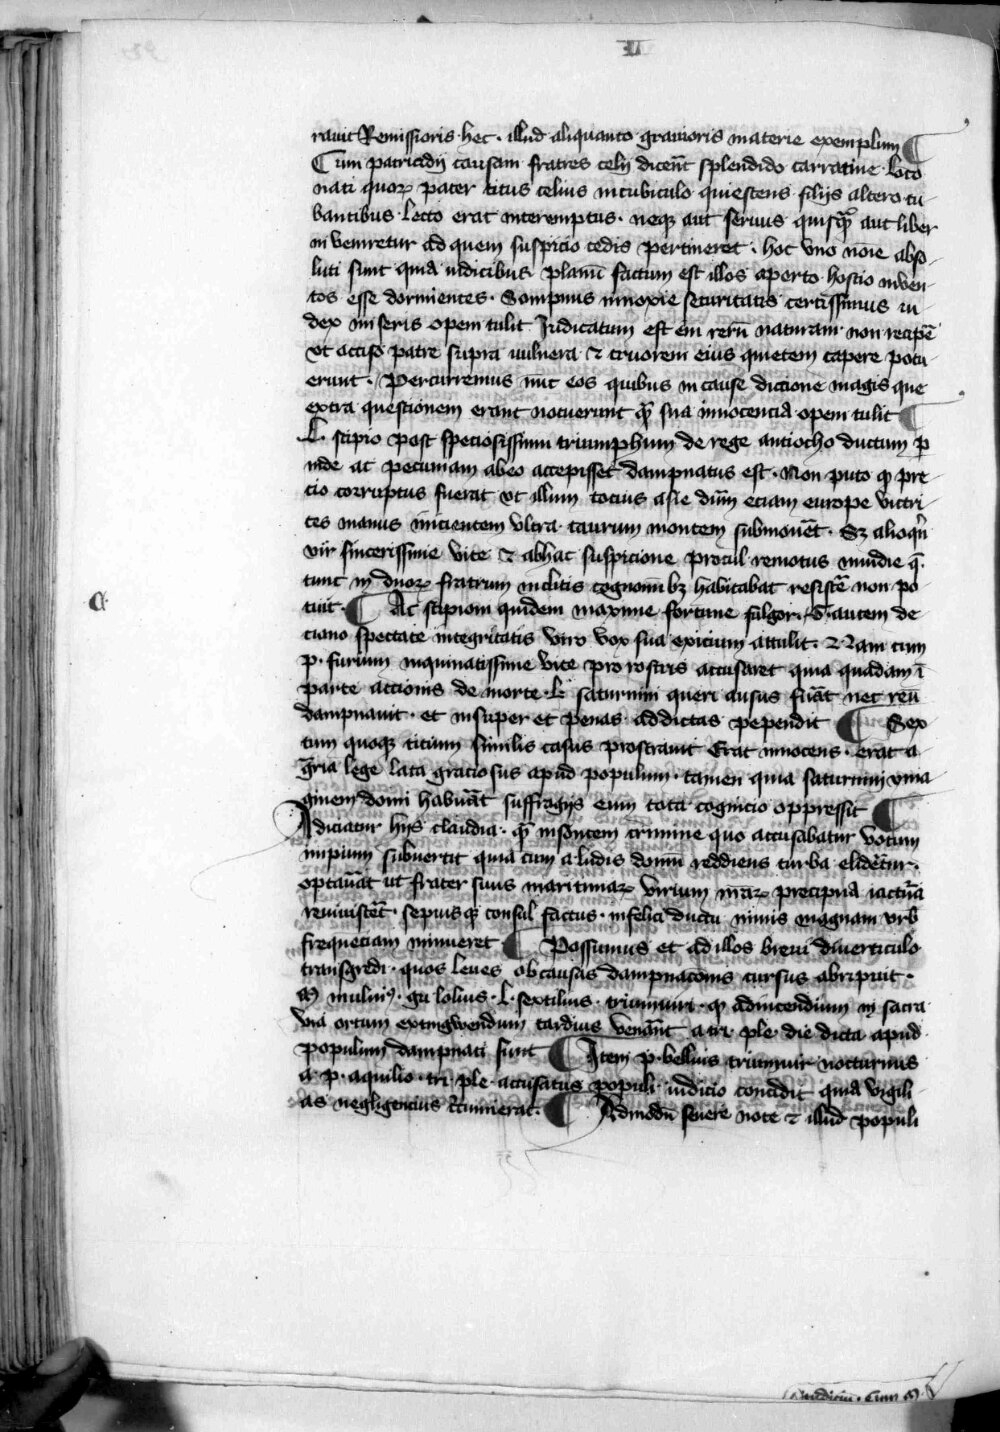 VIII
rauit Remissioris hec · illud aliquanto grauioris materie exemplum ¶
Cum patricidij causam fratres celij dicent̄ splendido tarracine loco
nati quoꝝ pater titus celius in cubiculo quiescens filijs altero cu
bantibus lecto erat interemptus · neqꝫ aut seruus quisqꝫ aut liber
inveniretur ad quem suspicio cedis pertineret · hoc vno noīe abso
luti sunt quia iudicibus planū factum est illos aperto hostio inven
tos esse dormientes · Sompnus innoxie securitatis certissimus iu
dex miseris opem tulit Iudicatum est em̄ rerū naturam non recipe᷒
vt occiso patre supra uulnera ⁊ cruorem eius quietem capere potu
erunt · Percurremus nūc eos quibus in cause dictione magis que
extra questionem erant nocuerunt q̄ȝ sua innocencia opem tulit ¶
L · scipio post speciosissimū triumphum de rege antiocho ductum ꝑ
inde ac pecuniam ab eo accepisset dampnatus est · Non puto ꝙ pre
cio corruptus fuerat vt illum tocius asie dūm eciam europe victri
ces manus inicientem vltra taurum montem submouēt · Sꝫ alioqn̄
vir sincerissime vite ⁊ ab hac suspicione procul remotus inuidie q̄
tunc in duoꝝ fratrum inclitis cognomībꝫ habitabat resiste᷒ non po
tuit · ¶ Ac scipioni quidem maxime fortune fulgor · C · autem de
ciano spectate integritatis viro vox sua exicium attulit · Nam cum
p · furium inquinatissime vite pro rostris accusaret quia quadam ī
parte accionis de morte · L · saturnini queri ausus fuāt nec reū
dampnauit · et insuper et penas addictas pependit ¶ Sex
tum quoqꝫ titium similis casus prostrauit Erat innocens · erat a
gr̄ia lege lata graciosus apud populum · tamen quia saturnini yma
ginem domi habuāt suffragijs eum tota cognicio oppressit ¶
Adiciatur hijs claudia · q̄ȝ insontem crimine quo accusabatur votum
impium subuertit quia cum a ludis domū reddiens turba elidēt̄ur ·
optauāt ut frater suus maritimaꝝ virium nr̄aꝝ precipua iactūa
reuiuiscēt · sepiusqꝫ consul factus · infelici ductu nimis magnam vrb
frequeciam minueret ¶ Possumus et ad illos breui diuerticulo
transgredi · quos leues ob causas dampnacōnis cursus abripuit ·
M · muluiꝰ · gn lolius · L · sextilius · triumuiri · ꝙ ad incendium in sacra
via ortum extingwendum tardius venāt̄ a tri · ple · die dicta apud
populum dampnati sunt ¶ Item p · bellius triumuir nocturnus
a · p · aquilio · tri · ple · accusatus populi iudicio concidit quia vigili
as negligencius circumierat · ¶ Admodū seuere note ⁊ illud populi